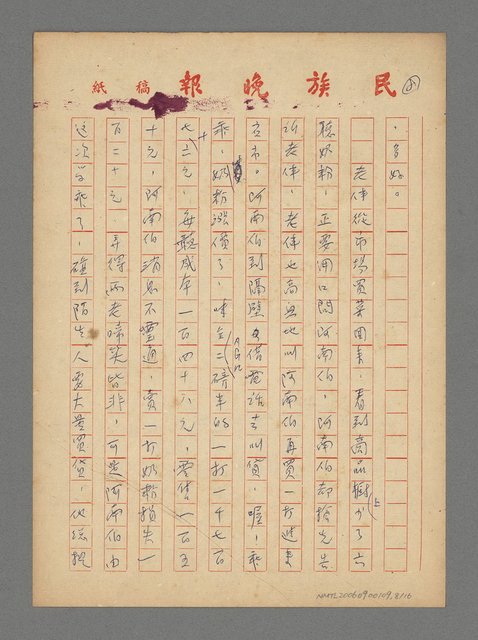 民族晚報 稿紙
，多好。
老伴從市場買菜回來，看到商品櫥上少了六
聽奶粉，正要開口問阿南伯，阿南伯都搶先告
訴老伴，老伴也高興地叫阿南伯再買一打進來
賣。阿南伯到隔壁借電話去叫貨，喔！乖
乖，奶粉漲價了，味全二磅半的一打一千七百
七十二元，每聽成本一百四十六元，零售一百五
十元，阿南伯消息不靈通，賣一打奶粉損失一
百二十元，弄得兩老啼笑皆非，可是阿南伯由
這次學乖了，碰到陌生人要大量買貨，他總推
NMTL20060900109, 8/16